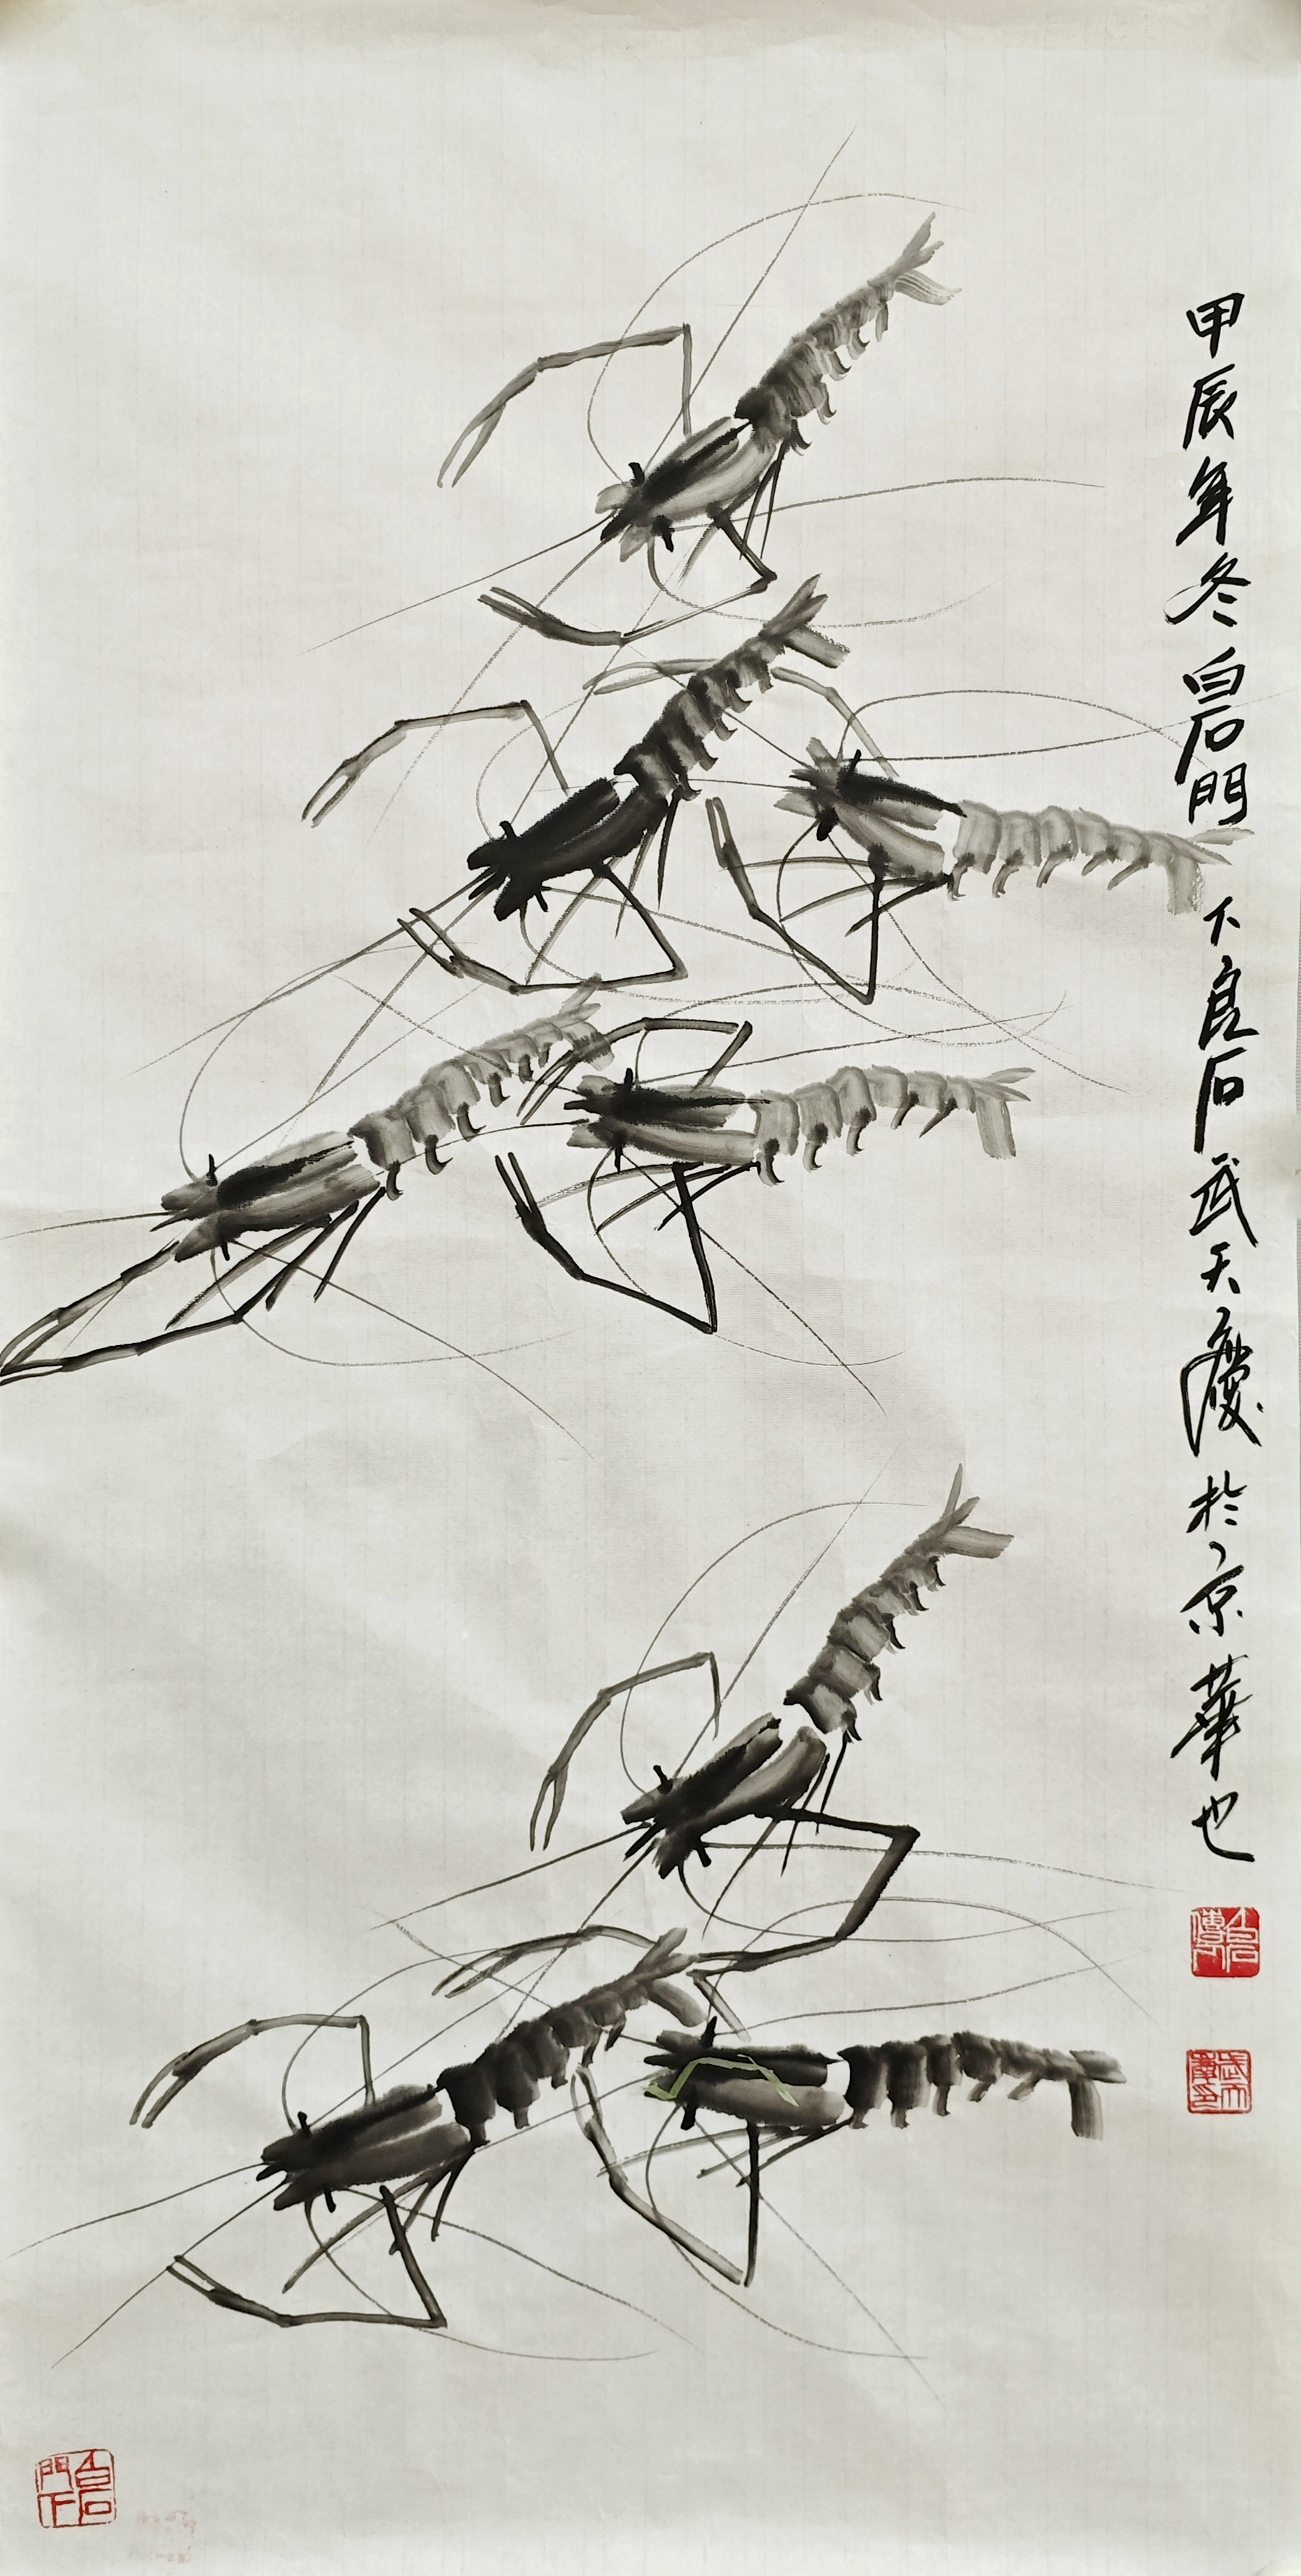 甲辰年冬白石門下良石武天慶於京華也
白石門下